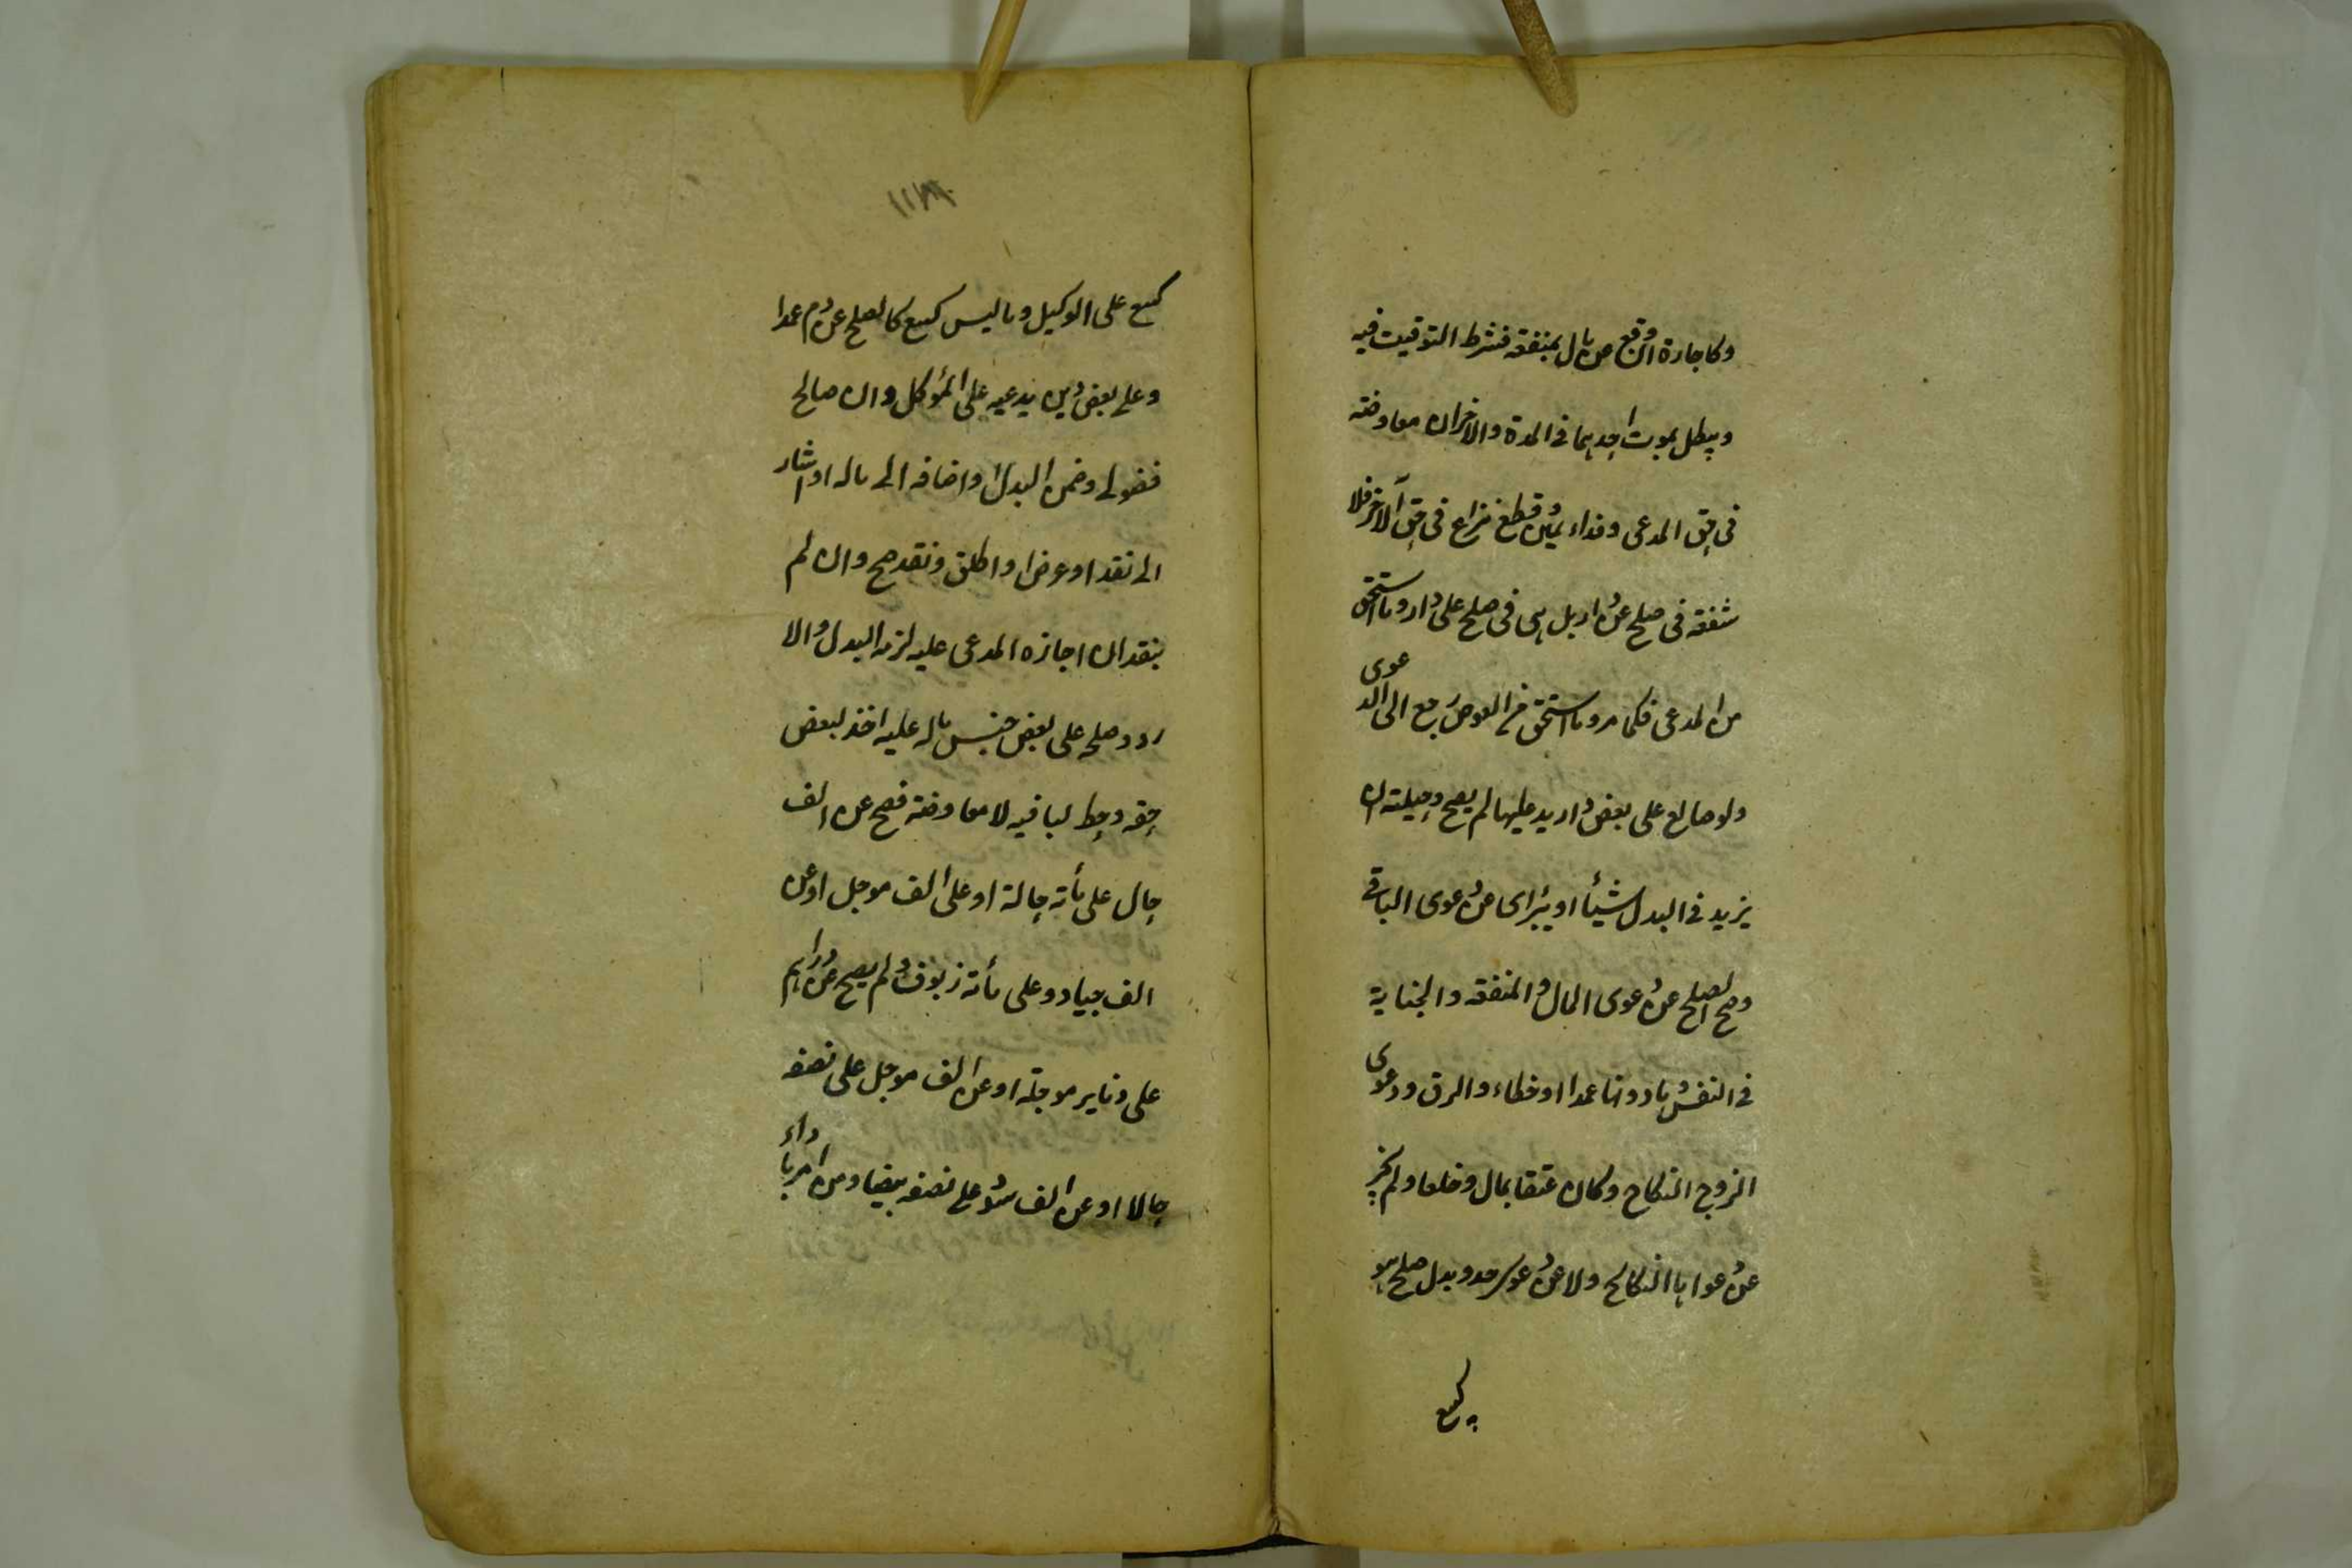 وكاجارة ان وقع عن مال بمنفقه فشرط التوقيت فيه
ويبطل بموت احدهما فى المدة والاخران معاوضه
فى حق المدعى وفداء يمين وقطع نزاع فى حق الآخر فلا
شفعه فى صلح عن دار بل هى فى صلح على دار وما استحق
من المدعى فكما مر وما استحق من العوض رجع الى الدعوى
ولو صالح على بعض دار يدعيها لم يصح وحيلته ان
يزيد فى البدل شيئا او يبرأى عن دعوى الباقى
وصح الصلح عن دعوى المال والمنفقه والجناية
فى النفس وما دونها عمدا او خطاء والرق ودعوى
الزوج النكاح وكان عتقا بمال وخلعا ولم يجز
عن دعواها النكاح ولا عن دعوى حد وبدل صلح هو
كبيع
كبيع على الوكيل وما ليس كبيع كالصلح عن دم عمدا
وعلى بعض دين يدعيه على المؤكل وان صالح
فضولى وضمن البدل واضافه الى ماله او اشار
الى نقد او عرض او اطلق ونقد صح وان لم
ينقد ان اجازه المدعى عليه لزمه البدل والا
رد وصلحه على بعض جنس ماله عليه اخذ لبعض
حقه وحط لباقيه لا معاوضة فصح عن الف
حال على مأته حالة او على الف موجل او عن
الف جياد وعلى مأته زيوف ولم يصح عن دراهم
على دنانير موجلة او عن الف موجل على نصفه
حالا او عن الف سود على نصفه بيضا ومن امر باداء